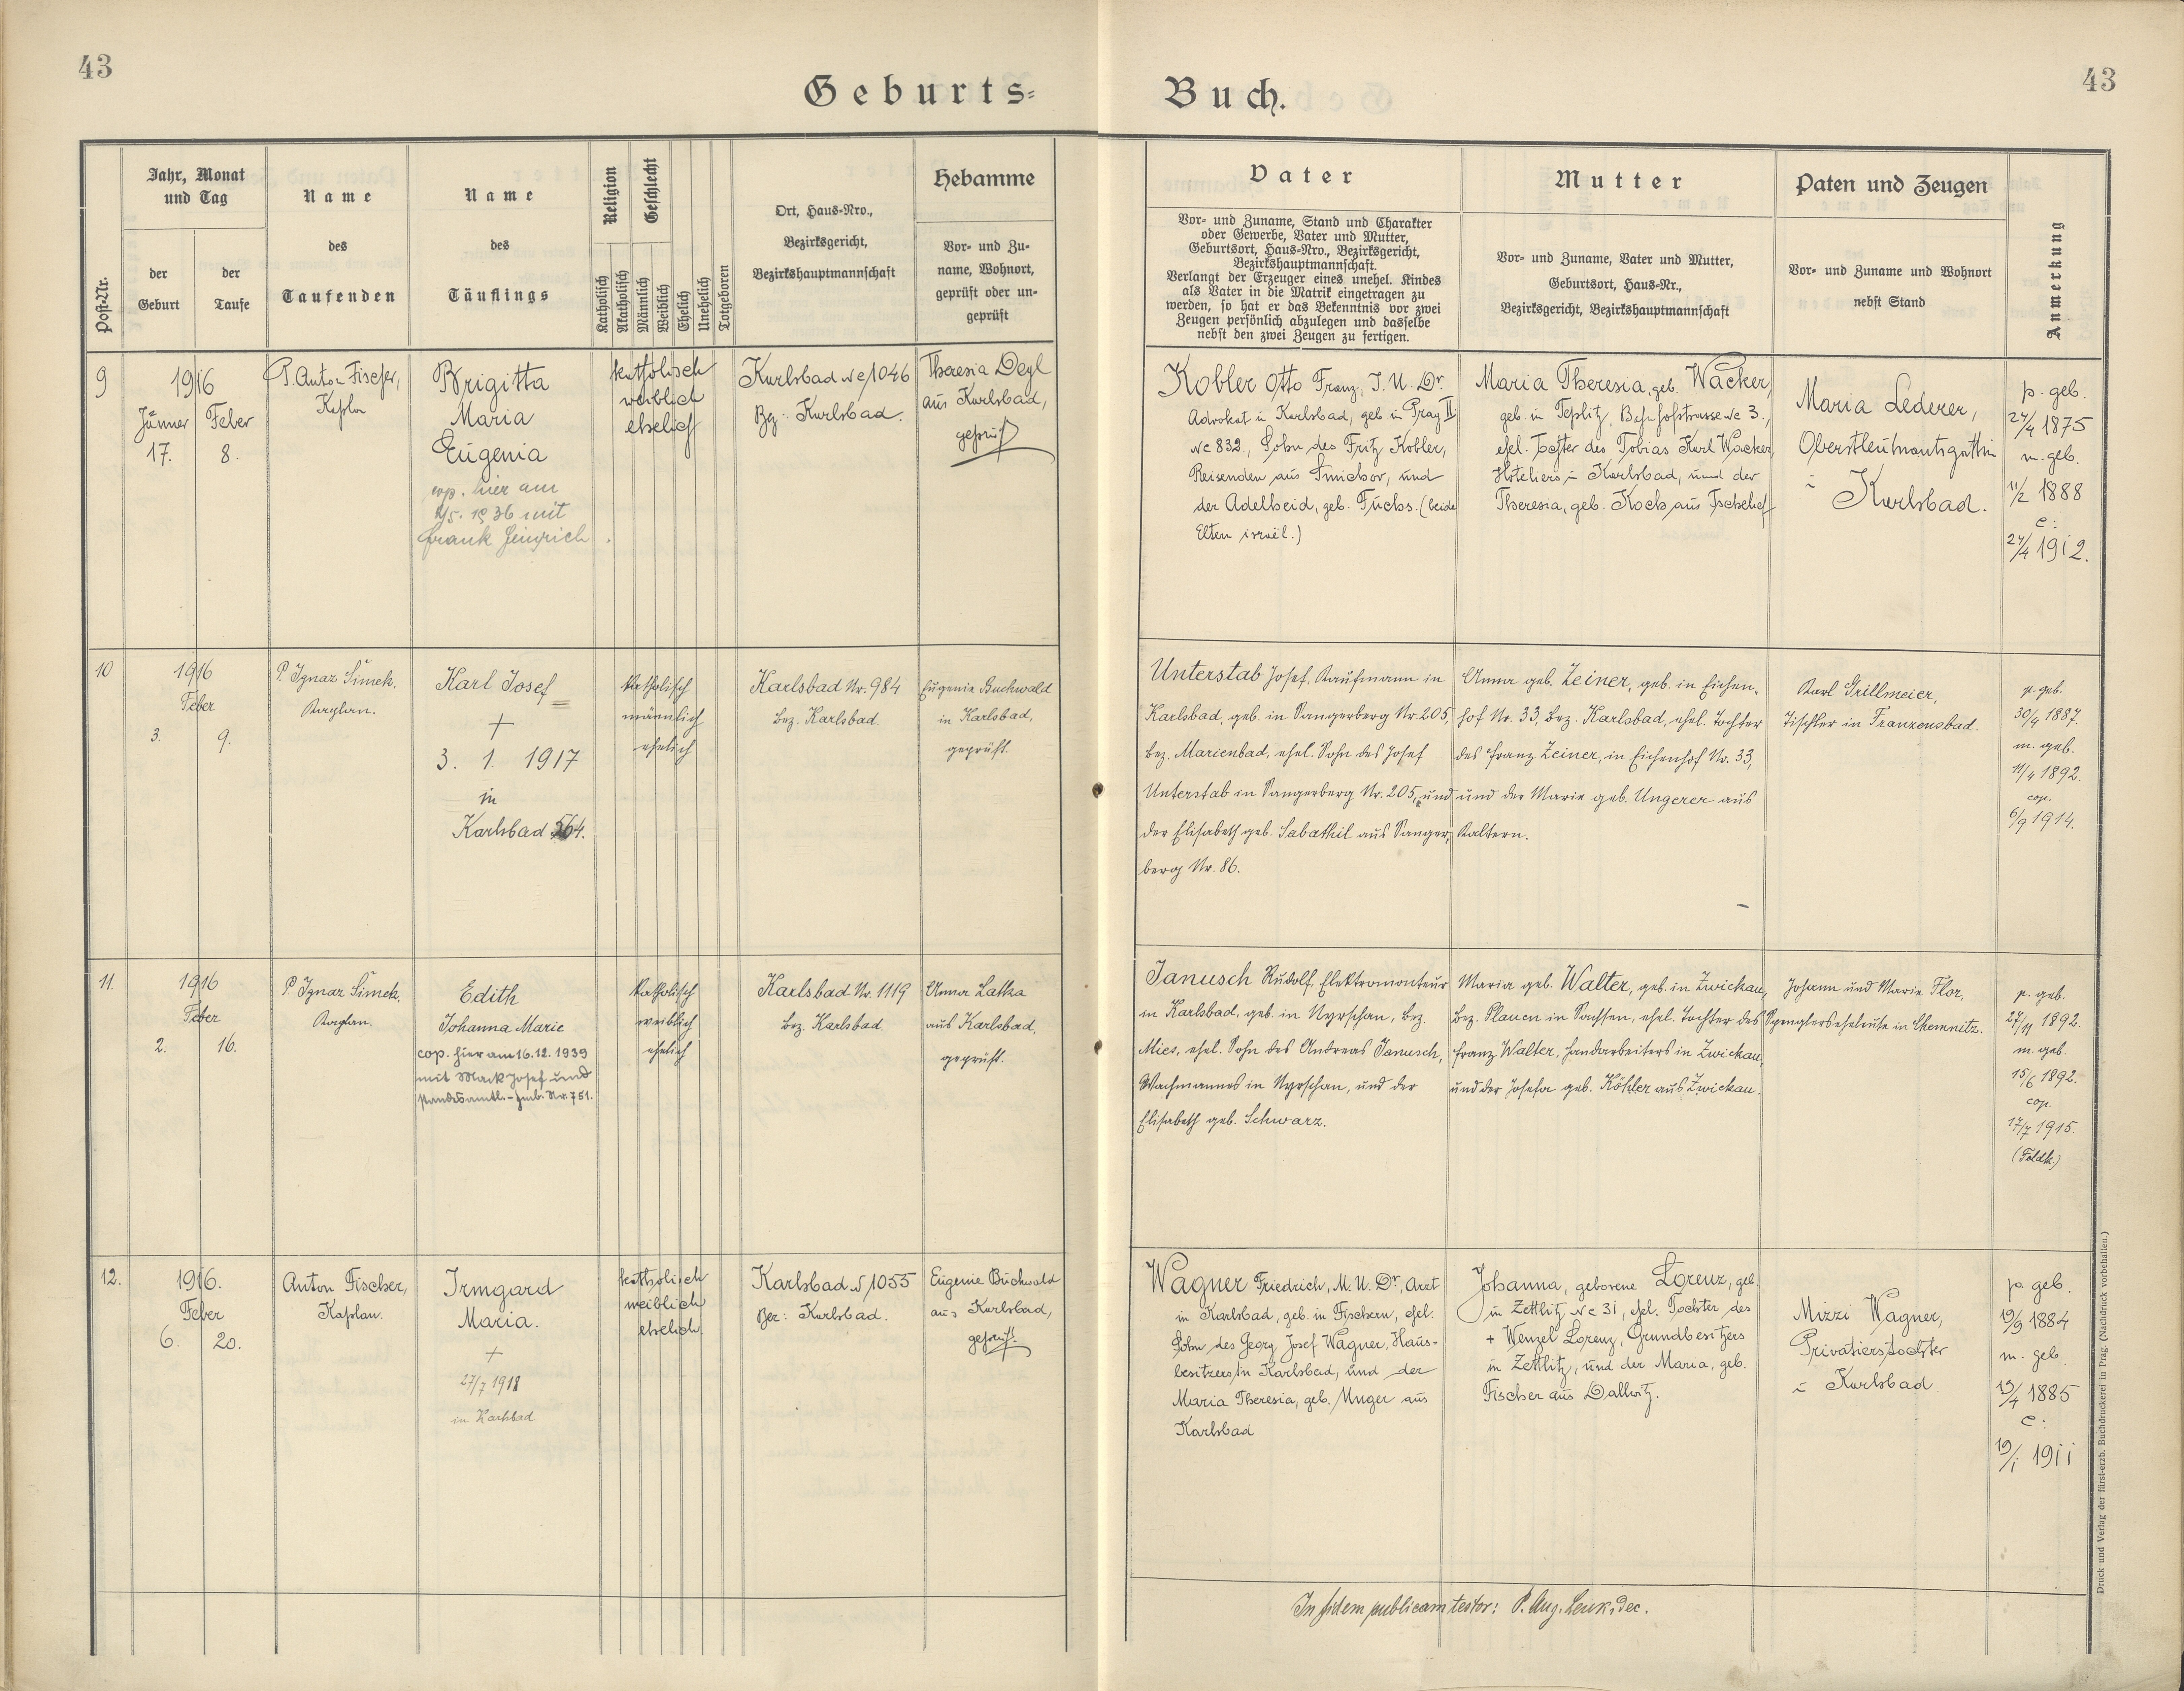 43
Geburts-
Buch.
43
Post-Nr.
Jahr, Monat
und Tag
der
Geburt
der
Taufe
Name
des
Taufenden
Name
des
Täuflings
Religion
Katholisch
Akatholisch
Geschlecht
Männlich
Weiblich
Ehelich
Unehelich
Totgeboren
Ort, Haus-Nro.,
Bezirksgericht,
Bezirkshauptmannschaft
Hebamme
Vor- und Zu-
name, Wohnort,
geprüft oder un-
geprüft
Vater
Vor- und Zuname, Stand und Charakter
oder Gewerbe, Vater und Mutter,
Geburtsort, Haus-Nro., Bezirksgericht,
Bezirkshauptmannschaft.
Verlangt der Erzeuger eines unehel. Kindes
als Vater in die Matrik eingetragen zu
werden, so hat er das Bekenntnis vor zwei
Zeugen persönlich abzulegen und dasselbe
nebst den zwei Zeugen zu fertigen.
Mutter
Vor- und Zuname, Vater und Mutter,
Geburtsort, Haus-Nr.,
Bezirksgericht, Bezirkshauptmannschaft
Paten und Zeugen
Vor- und Zuname und Wohnort
nebst Stand
Anmerkung
9
1916
Jänner Feber
17. 8.
P. Anton Fischer,
Kaplan
Brigitta
Maria
Eugenia
cop. hier am
1936 mit
Frank Heinrich
katholisch
weiblich
ehelich
Karlsbad Nc 1046
Bz: Karlsbad.
Theresia Deyl
aus Karlsbad,
geprüft
Kobler Otto Franz, J. U. Dr.
Advokat in Karlsbad, geb. in Prag II
Nc 832, Sohn des Fritz Kobler,
Reisenden aus Smichov, und
der Adelheid, geb. Fuchs. (beide
Eltern israël.)
Maria Theresia, geb. Wacker,
geb. in Teplitz, Bahnhofstrasse Nc 3.,
ehel. Tochter des Tobias Karl Wacker,
Hoteliers in Karlsbad, und der
Theresia, geb. Koch aus
Maria Lederer,
Oberstleutnantsgattin
in Karlsbad.
p. geb.
24/4 1875
m. geb.
11/2 1888
c:
24/4 1912.
10
1916
Feber
3. 9.
P. Ignaz Šimek,
Kaplan.
Karl Josef
+
3. 1. 1917
in
Karlsbad 564.
katholisch
männlich
ehelich
Karlsbad Nr. 984
Bez. Karlsbad.
Eugenie Buchwald
in Karlsbad,
geprüft.
Unterstab Josef, Kaufmann in
Karlsbad, geb. in Sangerberg Nr. 205,
Bez. Marienbad, ehel. Sohn des Josef
Unterstab in Sangerberg Nr. 205, und
der Elisabeth geb. Sabathil aus Sanger-
berg Nr. 86.
Anna geb. Zeiner, geb. in Eichen-
hof Nr. 33, Bez. Karlsbad, ehel. Tochter
des Franz Zeiner, in Eichenhof Nr. 33,
und der Marie geb. Ungerer aus
Kaltern.
Karl Grillmeier,
Tischler in Franzensbad.
p. geb.
30/4 1887.
m. geb.
11/4 1892.
cop.
6/9 1914.
11.
1916
Feber
2. 16.
P. Ignaz Šimek,
Kaplan.
Edith
Johanna Marie
cop. hier am 16.12. 1939
mit Mack Josef und
standesamtl. - Nr. 751.
katholisch
weiblich
ehelich
Karlsbad Nr. 1119
Bez. Karlsbad.
Anna Latka
aus Karlsbad,
geprüft.
Janusch Rudolf, Elektromonteur
in Karlsbad, geb. in Nyrschan, Bez.
Mies, ehel. Sohn des Andreas Janusch,
Wachmannes in Nyrschan, und der
Elisabeth geb. Schwarz.
Maria geb. Walter, geb. in Zwickau,
Bez. Plauen in Sachsen, ehel. Tochter des
Franz Walter, Handarbeiters in Zwickau,
und der Josefa geb. Köhler aus Zwickau.
Johann und Marie Flor,
Spenglerseheleute in Chemnitz.
p. geb.
27/11 1892.
m. geb.
15/6 1892.
cop.
17/7 1915.
(Feldk)
12.
1916.
Feber
6. 20.
Anton Fischer,
Kaplan.
Irmgard
Maria.
+
27/7 1918
in Karlsbad
katholisch
weiblich
ehelich
Karlsbad N 1055
Bez: Karlsbad.
Eugenie Buchwald
aus Karlsbad,
geprüft.
Wagner Friedrich, M. U. Dr., Arzt
in Karlsbad, geb. in Fischern, ehel.
Sohn des Georg Josef Wagner, Haus-
besitzers in Karlsbad, und der
Maria Theresia, geb. Unger aus
Karlsbad
Johanna, geborene Lorenz, geb.
in Zettlitz Nc 31, ehel. Tochter des
+ Wenzel Lorenz, Grundbesitzers
in Zettlitz, und der Maria, geb.
Fischer aus Dallwitz.
Mizzi Wagner,
Privatierstochter
in Karlsbad.
p geb.
19/9 1884
m. geb.
19/4 1885
c:
19/1 1911
In fidem publicam testor: P. Aug. Lenk, Dec.
Druck und Verlag der fürst-erzb. Buchdruckerei in Prag. (Nachdruck vorbehalten.)